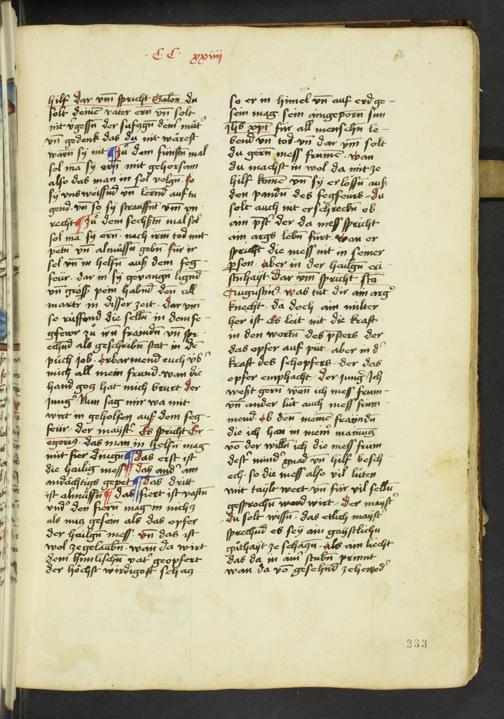 CC xxiiij
hilf dar vm̄ spricht Salon du
solt deinē vater ern vn̄ solt
nit vgessn der sufczgn deinr mutr̄
vn̄ gedenk das du nit wärest
wārn sy nit Zu dem funftn mal
sol mā sy ern mit gehorsam
also das man in sol volgn so
sy vnßweissnd vn̄ lernd auf tu
gend vn̄ so sy straffnt vm̄ vn
recht Zu dem sechstn mal sol
sol mā sy ern nach irm tod mit
petn vn̄ almusn gebn für ir
sel vn̄ in helfn auß dem feg
feur dar in sy gevangn lignd
vn̄ gross pein habnd den all
marter in disser zeit dar vm̄
so rüffend die selbn in dem fe
gfewr zu irn fraindn vn̄ spr
echnd als geschribn stat in dē
puch job Erbarmend euch vb̄
mich all mein frund wan die
hand gog hat mich brurt Der
jung Nun sag mir wa mit
wirt in geholfen auß dem feg
feur der mayst̄ Es spricht Gr
egorius das man in helfn mag
mit fier dingn das erst ist
die hailig mess das and̄ ain
andächtigs gepet das dritt
ist almusn das fiert ist vastn
vnd̄ den fiern mag in nichcz
als nucz gesein als das opfer
der hailgn mess vn̄ das ist
wol zegelaubn wan da wirt
dem himlischn vat̄ geopfert
der höchst wirdigost schacz
so er in himel vn̄ auf erd ge
sein mag sein aingeporn sun
ihs xps für all menschn le
bend vn̄ tod vn̄ dar vm̄ solt
du gern mess frumē wan
du machst in wol da mit ze
hilf komē vn̄ sy erlosn auß
den pandn des fegfeurs du
solt auch nit erschreckn ob
ain pfst̄ der da mess spricht
ain args lebn fürt wan er
spricht die mess nit in seiner
p̄son aber in der hailgn cri
stnhayt dar vm̄ spricht sts
Augustinus was tut der ain arḡ
knecht da doch ain milter
her ist Es leit nit die kraft
in den wortn des pfsters der
das opfer auf put aber in d̄
kraft des schopfers der das
opfer emphacht Der jung Ich
weßt gern wan ich mess frum
vn̄ ander lüt auch mess frum
mend ob den meinē fraindn
die ich han in meinr mainūg
vō der willn ich die mess frum
dest mind̄ gnad vn̄ hilf besch
ech so die mess also vil lüten
mit taylt wert vn̄ für vil selln
gesprochn word wirt Der mayst̄
du solt wissn das etlich mayst̄
sprechnd es sey ain gaystlichn
guthayt ze schaczn als ain liecht
das da in ain stubn prinnt
wan da vō gesehnd zehenod̄
233